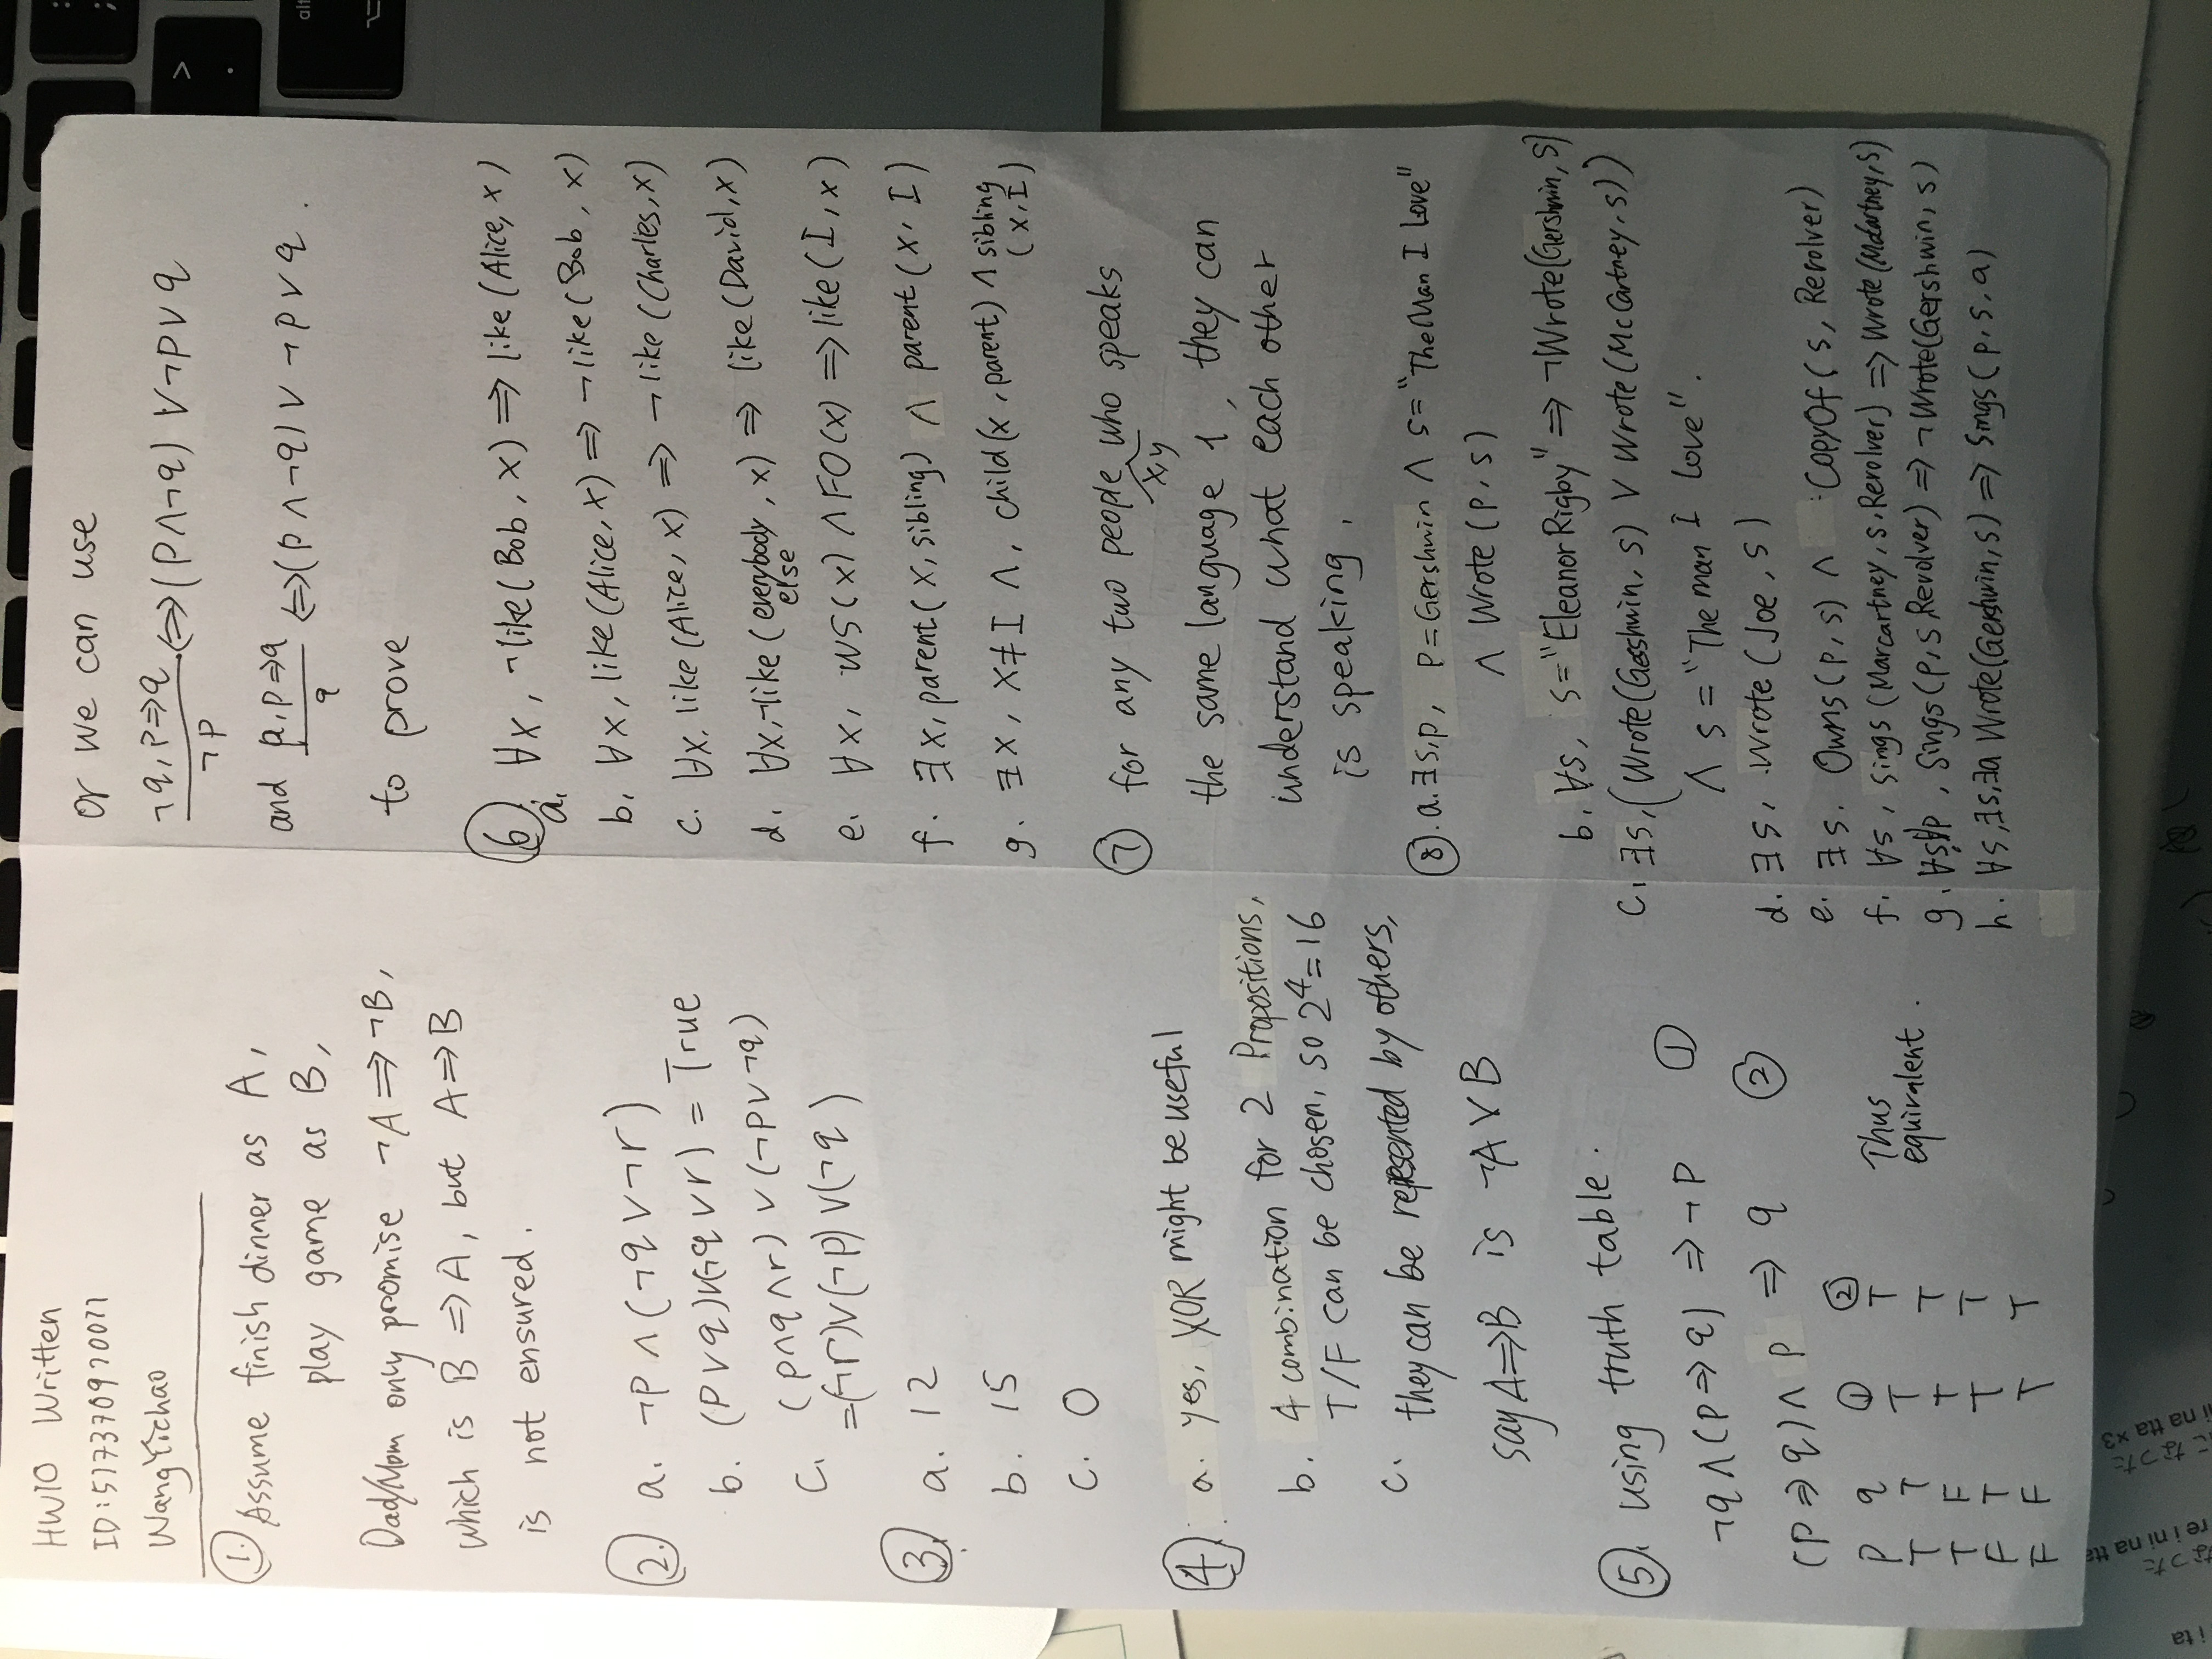 HW10 Written
ID:517370910011
WangYichao
①. Assume finish dinner as A,
play game as B,
Dad/Mom only promise ¬A⇒¬B,
which is B⇒A, but A⇒B
is not ensured.
②. a. ¬p∧(¬q∨¬r)
b. (p∨q)∨(¬q∨r) = True
c. (p∧q∧r)∨(¬p∨¬q)
=(¬r)∨(¬p)∨(¬q)
③. a. 12
b. 15
c. 0
④. a. yes, XOR might be useful
b. 4 combination for 2 Propositions,
T/F can be chosen, so 2⁴=16
c. they can be represented by others,
say A⇒B is ¬A∨B
⑤. using truth table.
¬q∧(p⇒q) ⇒¬p ①
(p⇒q)∧p ⇒ q ②
p q ① ②
T T T T
T F T T
F T T T
F F T T
Thus
equivalent.
or we can use
¬q, p⇒q
¬p
⇔(p∧¬q)∨¬p∨q
and p, p⇒q
q
⇔(p∧¬q)∨¬p∨q.
to prove
⑥.
a. ∀x, ¬like(Bob, x)⇒like(Alice, x)
b. ∀x, like(Alice, x)⇒¬like(Bob, x)
c. ∀x, like(Alice, x)⇒¬like(Charles, x)
d. ∀x, ¬like(everybody else, x)⇒ like(David, x)
e. ∀x, WS(x)∧FO(x)⇒like(I, x)
f. ∃x, parent(x, sibling) ∧ parent(x, I)
g. ∃x, x≠I ∧, child(x, parent)∧sibling
(x, I)
⑦ for any two people who speaks
x,y
the same language l, they can
understand what each other
is speaking.
⑧. a. ∃s,p, p=Gershwin ∧ s="The Man I Love"
∧ Wrote(p, s)
b. ∀s, s="Eleanor Rigby"⇒¬Wrote(Gershwin, s)
c. ∃s, (Wrote(Gesshwin, s) ∨ Wrote(McCartney, s))
∧ s="The man I Love".
d. ∃s, Wrote(Joe, s)
e. ∃s. Owns(p, s) ∧ CopyOf(s, Revolver)
f. ∀s, Sings(Marcartney, s, Revolver)⇒Wrote(McCartney, s)
g. ∀s,∀p, Sings(p, s, Revolver)⇒¬Wrote(Gershwin, s)
h. ∀s,∃s,∃a Wrote(Gershwin, s)⇒ Sings(p, s, a)
alt
>
.
なった
rei ni na tta
になった
ni na tta x3